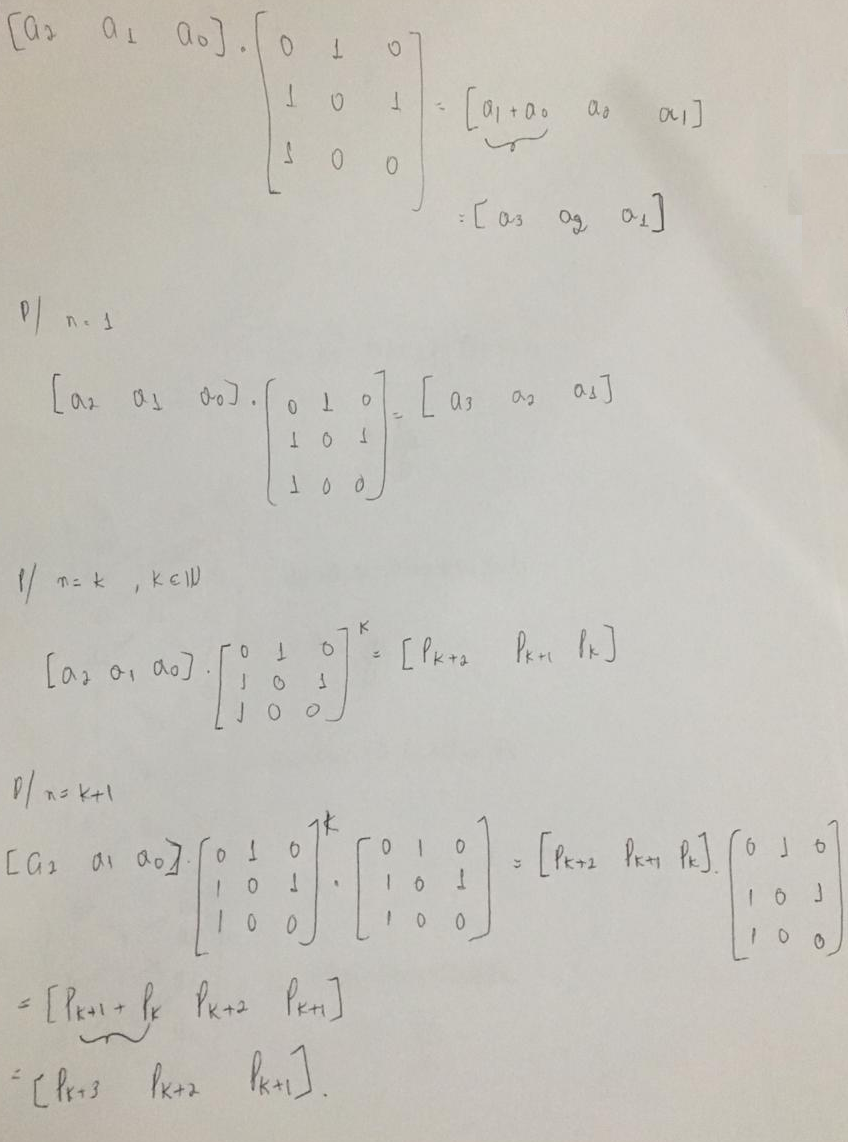 [a2 a1 a0] . [0 1 0
1 0 1
1 0 0] = [a1 + a0 a0 a1]
= [a3 a2 a1]
P/ n = 1
[a2 a1 a0] . [0 1 0
1 0 1
1 0 0] = [a3 a2 a1]
P/ n = k , k ∈ ℕ
[a2 a1 a0] . [0 1 0
1 0 1
1 0 0]^K = [P_{K+2} P_{K+1} P_K]
P/ n = k+1
[a2 a1 a0] . [0 1 0
1 0 1
1 0 0]^K . [0 1 0
1 0 1
1 0 0] = [P_{K+2} P_{K+1} P_K] . [0 1 0
1 0 1
1 0 0]
= [P_{K+1} + P_K P_{K+2} P_{K+1}]
= [P_{K+3} P_{K+2} P_{K+1}].